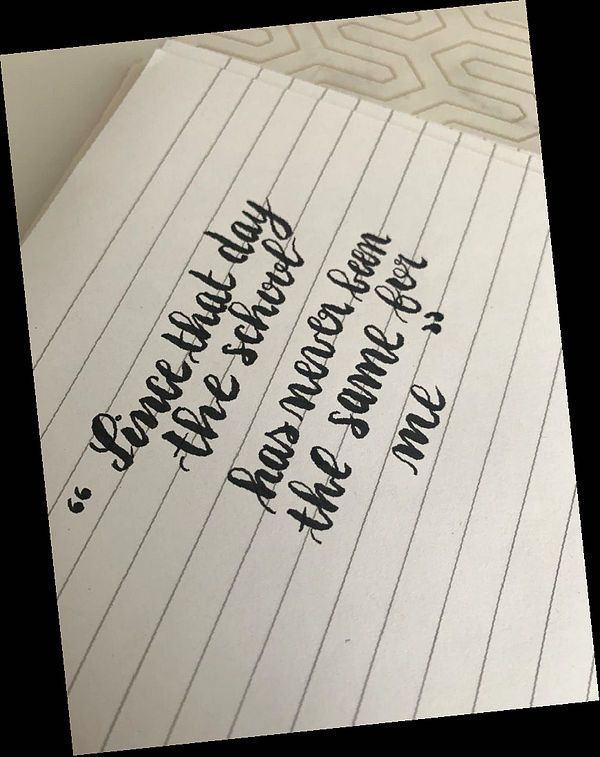 “ Since that day
the school
has never been
the same for
me ”